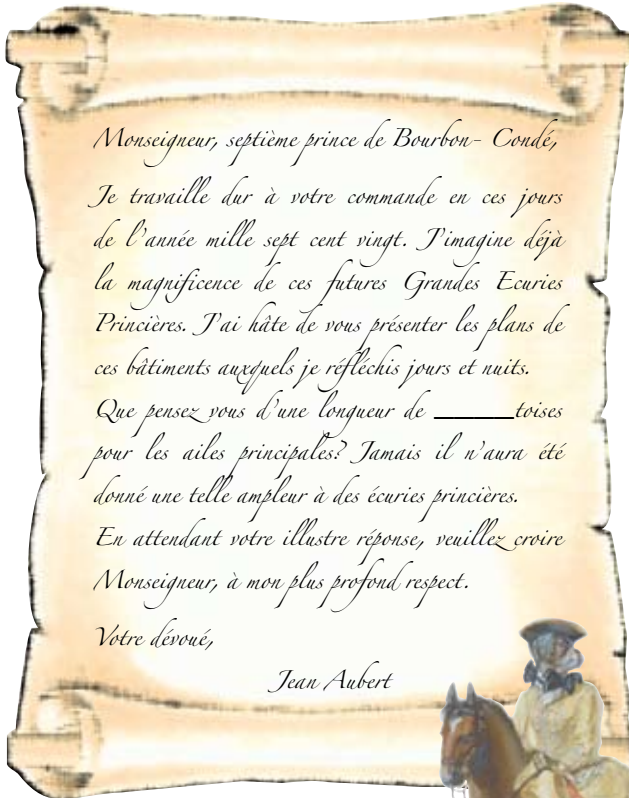 Monseigneur, septième prince de Bourbon- Condé,
Je travaille dur à votre commande en ces jours
de l'année mille sept cent vingt. J'imagine déjà
la magnificence de ces futures Grandes Ecuries
Princières. J'ai hâte de vous présenter les plans de
ces bâtiments auxquels je réfléchis jours et nuits.
Que pensez vous d'une longueur de ______toises
pour les ailes principales? Jamais il n'aura été
donné une telle ampleur à des écuries princières.
En attendant votre illustre réponse, veuillez croire
Monseigneur, à mon plus profond respect.
Votre dévoué,
Jean Aubert